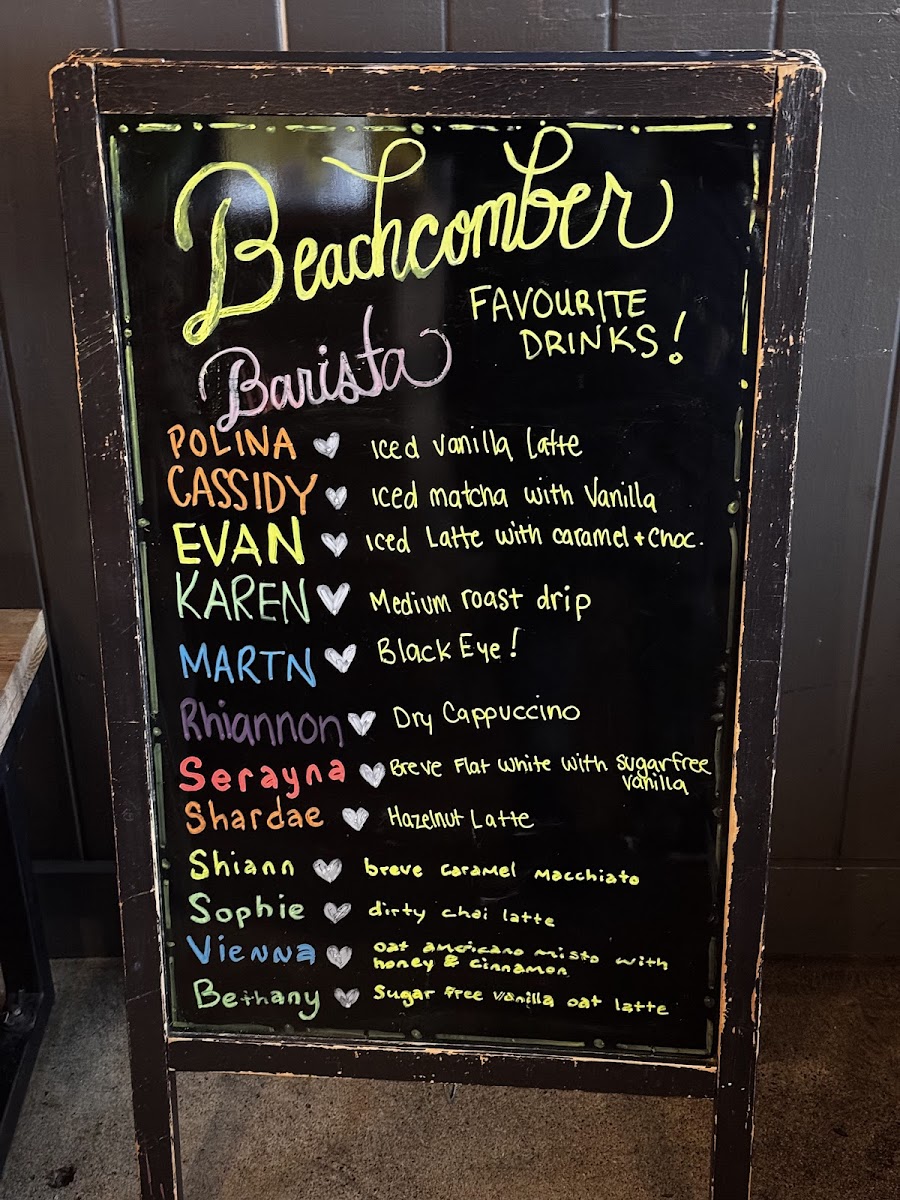 Beachcomber
FAVOURITE
DRINKS!
Barista
POLINA iced vanilla latte
CASSIDY iced matcha with Vanilla
EVAN iced Latte with caramel + choc.
KAREN Medium roast drip
MARTN Black Eye!
Rhiannon Dry Cappuccino
Serayna Breve Flat White with sugarfree
vanilla
Shardae Hazelnut Latte
Shiann breve caramel macchiato
Sophie dirty chai latte
Vienna oat americano misto with
honey & cinnamon
Bethany Sugar free vanilla oat latte